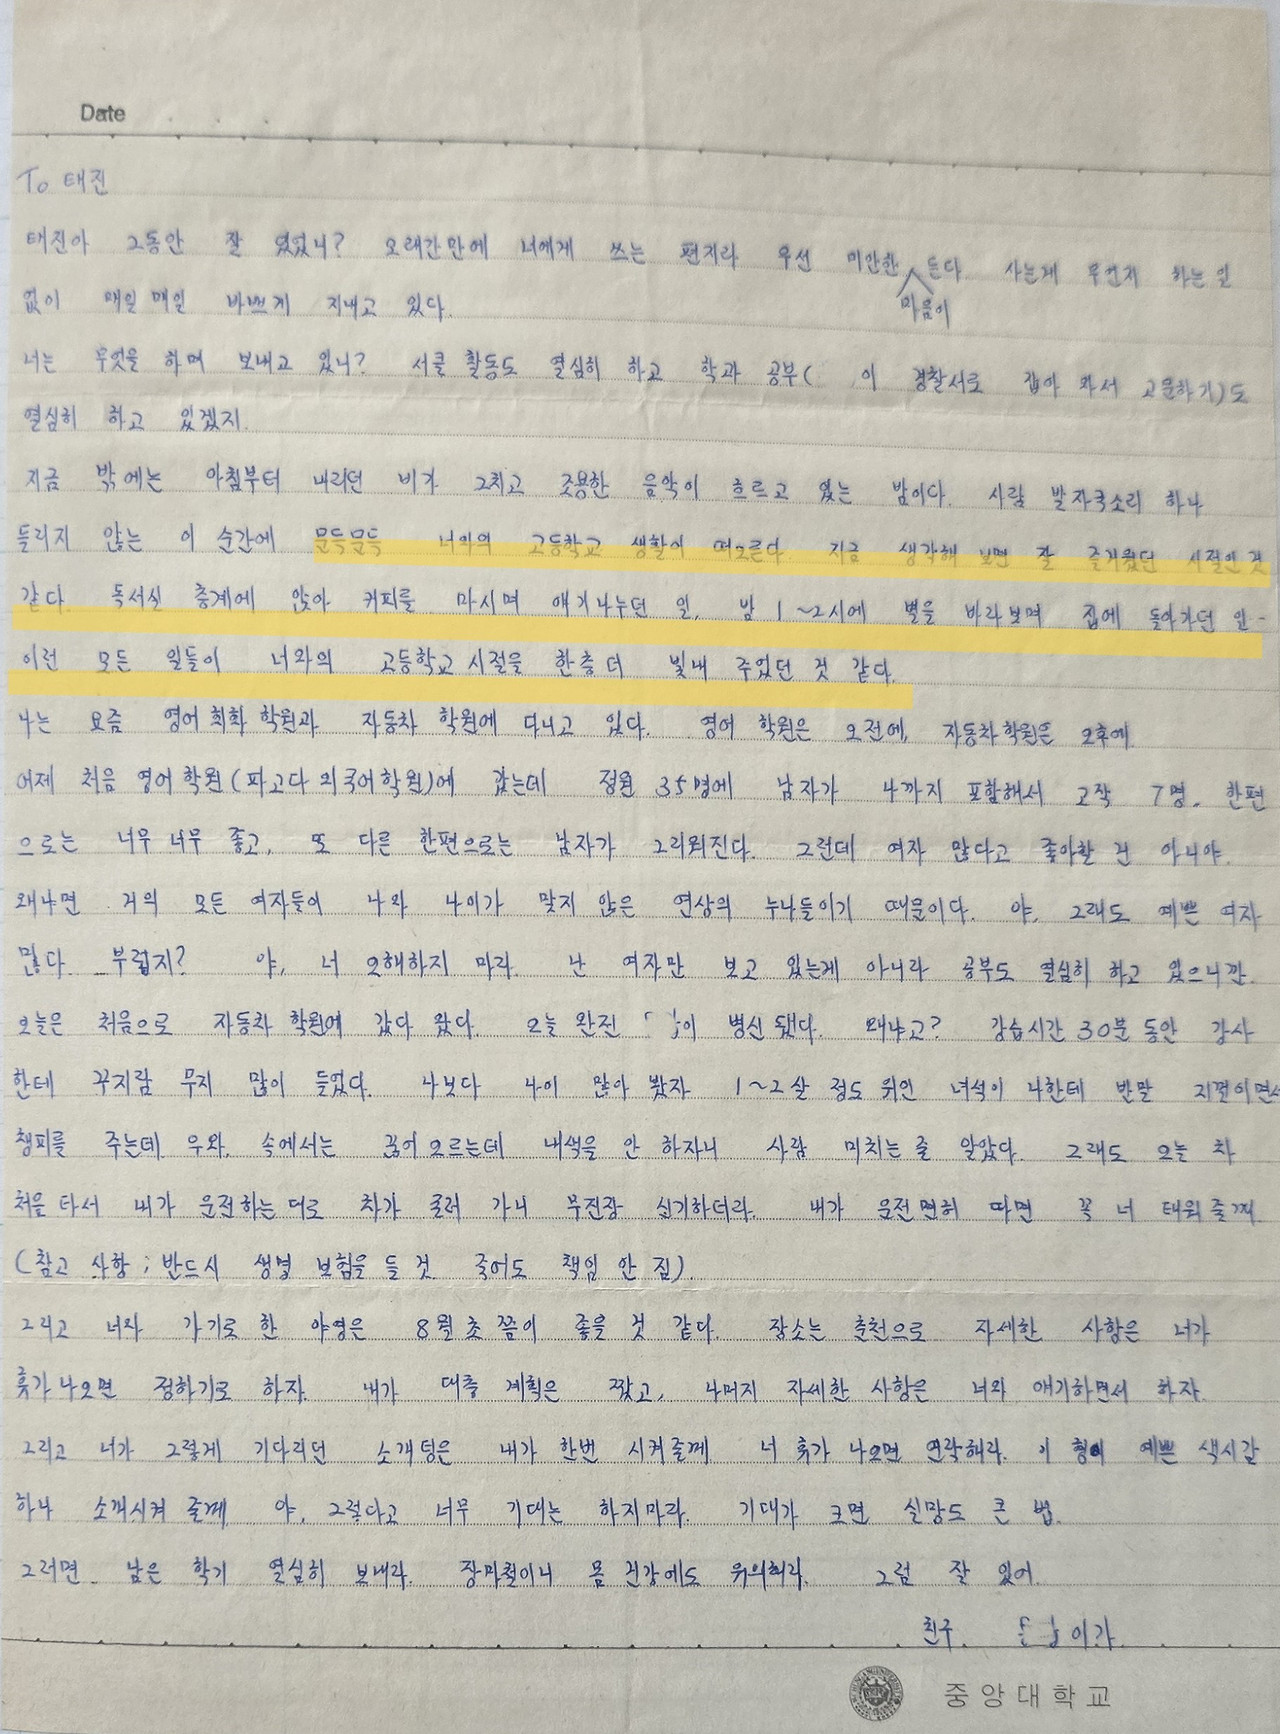 Date
To 태진
태진아 그동안 잘 있었니? 오래간만에 너에게 쓰는 편지라 우선 미안한 마음이 든다. 사는게 무언지 하는 일
없이 매일매일 바쁘게 지내고 있다.
너는 무엇을 하며 보내고 있니? 서클 활동도 열심히 하고 학과 공부( 이 경찰서로 잡아 와서 고문하기)도
열심히 하고 있겠지.
지금 밖에는 아침부터 내리던 비가 그치고 조용한 음악이 흐르고 있는 밤이다. 사람 발자국소리 하나
들리지 않는 이 순간에 문득문득 너와의 고등학교 생활이 떠오른다. 지금 생각해 보면 잘 즐거웠던 시절인 것
같다. 독서실 층계에 앉아 커피를 마시며 얘기나누던 일, 밤 1~2시에 별을 바라보며 집에 돌아가던 일..
이런 모든 일들이 너와의 고등학교 시절을 한층 더 빛내 주었던 것 같다.
나는 요즘 영어 회화 학원과 자동차 학원에 다니고 있다. 영어 학원은 오전에, 자동차 학원은 오후에.
어제 처음 영어 학원(파고다 외국어 학원)에 갔는데 정원 35명에 남자가 나까지 포함해서 고작 7명. 한편
으로는 너무 너무 좋고, 또 다른 한편으로는 남자가 그리워진다. 그런데 여자 많다고 좋아할 건 아니야.
왜냐면 거의 모든 여자들이 나와 나이가 맞지 않은 연상의 누나들이기 때문이다. 야, 그래도 예쁜 여자
많다. 부럽지? 야, 너 오해하지 마라. 난 여자만 보고 있는게 아니라 공부도 열심히 하고 있으니깐.
오늘은 처음으로 자동차 학원에 갔다 왔다. 오늘 완전 이 병신 됐다. 왜냐고? 강습시간 30분 동안 강사
한테 꾸지람 무지 많이 들었다. 나보다 나이 많아 봤자 1~2살 정도 위인 녀석이 나한테 반말 지껄이면서
챙피를 주는데 우와, 속에서는 끓어 오르는데 내색을 안 하자니 사람 미치는 줄 알았다. 그래도 오늘 차
처음 타서 내가 운전하는 대로 차가 굴러 가니 무진장 신기하더라. 내가 운전 면허 따면 꼭 너 태워 줄께.
(참고 사항 ; 반드시 생명 보험을 들 것. 죽어도 책임 안 짐).
그리고 너와 가기로 한 야영은 8월 초 쯤이 좋을 것 같다. 장소는 춘천으로 자세한 사항은 너가
휴가 나오면 정하기로 하자. 내가 대충 계획은 짰고, 나머지 자세한 사항은 너와 얘기하면서 하자.
그리고 너가 그렇게 기다리던 소개팅은 내가 한번 시켜줄께. 너 휴가 나오면 연락해라. 이 형이 예쁜 색시감
하나 소개시켜 줄께. 야, 그렇다고 너무 기대는 하지마라. 기대가 크면 실망도 큰 법.
그러면 남은 학기 열심히 보내라. 장마철이니 몸 건강에도 유의해라. 그럼 잘 있어.
친구. 이가.
중앙대학교